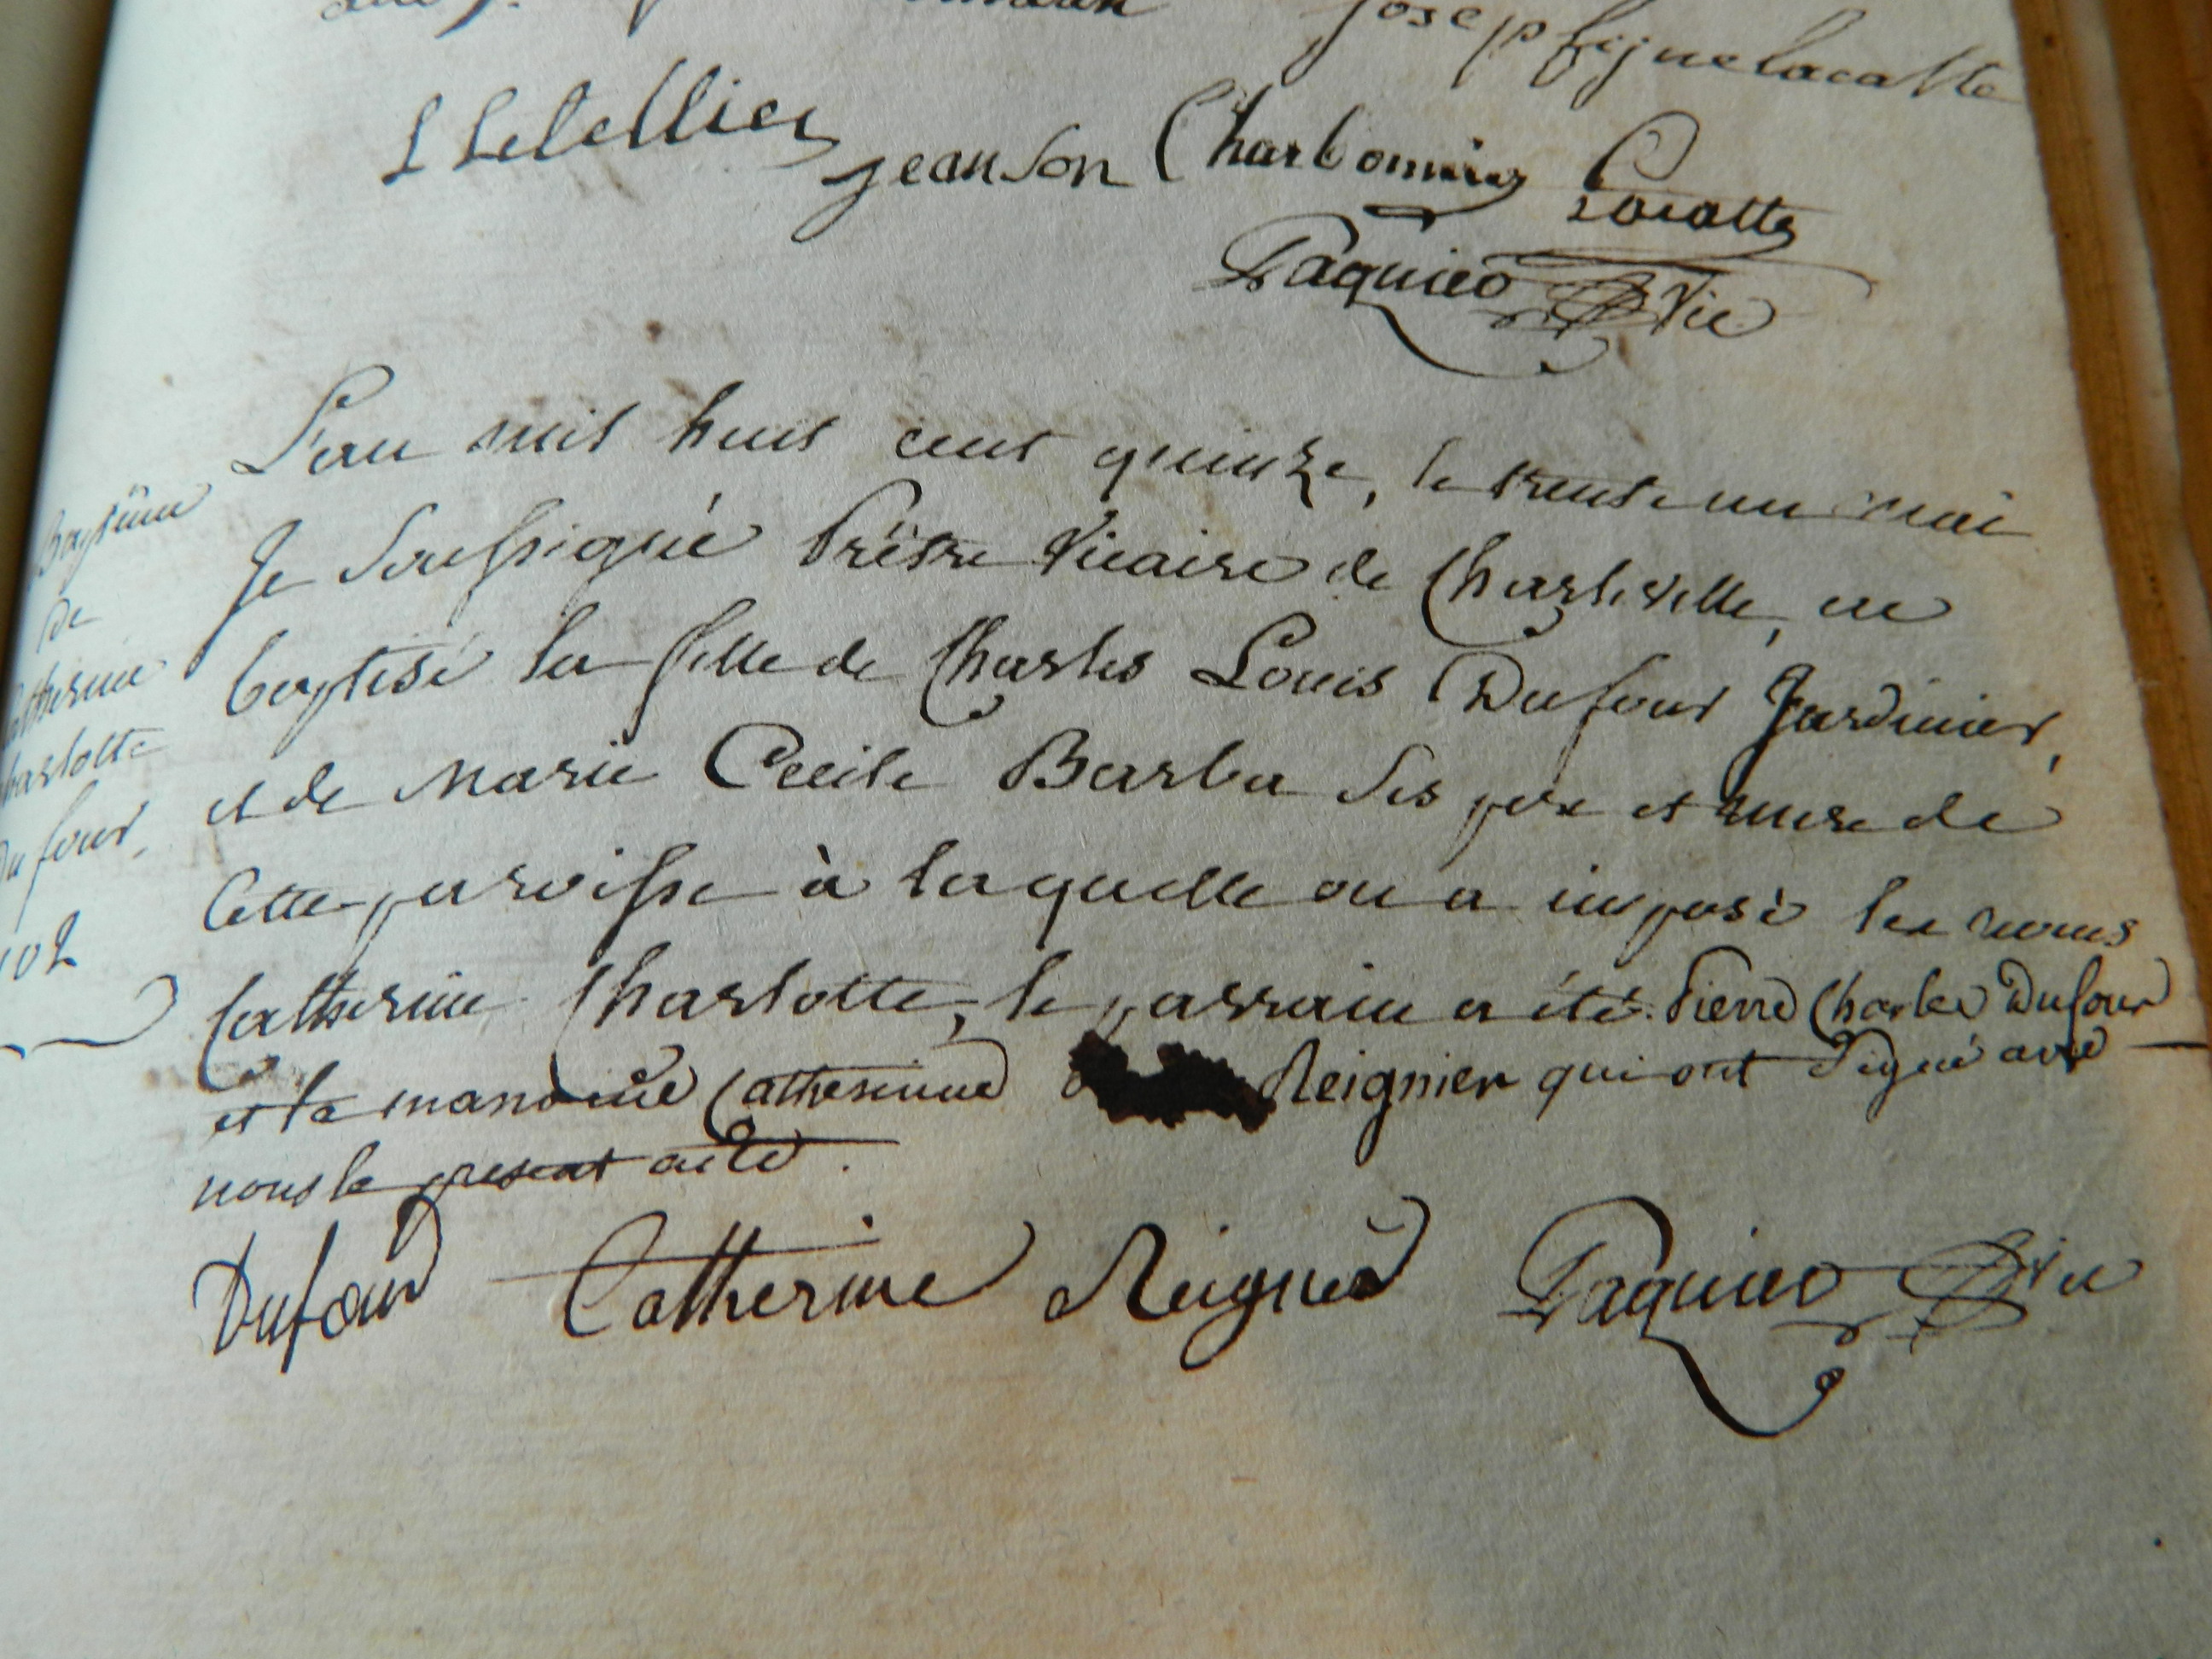 Joseph jynelacatte
L Letellier
jeanson Charbonnier Lacatte
Paquier Vic
Baptême
de
Catherine
Charlotte
Dufour,
102
L'an mil huit cent quinze, le trente un mai
Je Soussigné Prêtre Vicaire de Charleville, ai
baptisé la fille de Charles Louis Dufour Jardinier,
et de Marie Cecile Barba Ses pere et mere de
Cette paroisse à laquelle on a imposé les noms
Catherine Charlotte, le parrain a été Pierre Charles Dufour
et la marraine Catherinne Reignier qui ont Signé avec
nous le present acte.
Dufour Catherine Reignié Paquier Vic